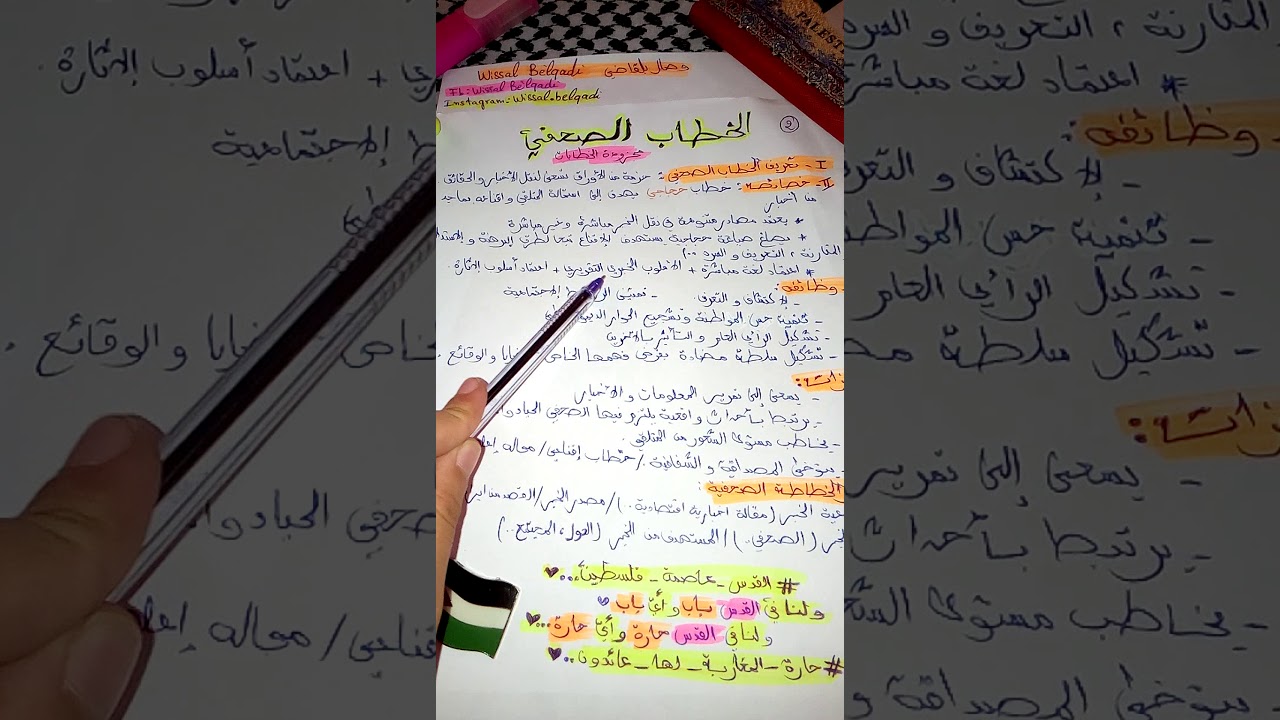 PALEST
وصال بلقاضي Wissal Belqadi
Fb: Wissal Belqadi
Instagram: Wissal-belqadi
② الخطاب الصحفي
مجزوءة الخطابات
I- تعريف الخطاب الصحفي: من الأوراق تسعى لنقل الأخبار والحقائق
II- خصائصه: خطاب حجاجي يهدف إلى استمالة المتلقي و إقناعه بما جد
من أخبار
* يعتمد مصادر متنوعة في نقل الخبر مباشرة وغير مباشرة
* صياغة حجاجية تستهدف الإقناع تبعا لطرق البرهنة و
المقارنة، التعريف و السرد ...
* اعتماد لغة مباشرة + الأسلوب الخبري التقريري + اعتماد أسلوب الإثارة.
وظائفه:
- الاكتشاف و التعرف - الاجتماعية
- تنمية حس المواطنة وتشجيع الحوار
- تشكيل الرأي العام و التأثير
- تشكيل سلطة مضادة بفهمها و الوقائع.
- يسعى إلى تمرير المعلومات و الأخبار
- يرتبط بأحداث واقعية يلتزم فيها الصحفي الحياد
- يخاطب مستوى الشعور من المتلقي
- يتوخى المصداقية و الشفافية / خطاب إقناعي / مجاله
الخطاطة الصحفية:
الخبر (مقالة اخبارية اقتصادية.) / مصدر الخبر /
(الصحفي..) / المستهدف من الخبر (الدول، المجتمع..)
# القدس - عاصمة - فلسطين..
و لنا في القدس باب و أيّ باب
و لنا في القدس حارة و أيّ حارة...
# حارة - المغاربة - لها - عائدون..